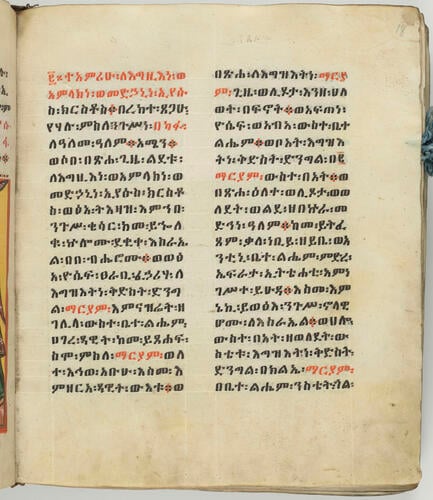 ፪፡ተአምሪሁ፡ለእግዚእነ፡ወ
አምላክነ፡ወመድኃኒነ፡ኢየሱ
ስ፡ክርስቶስ፨በረከተ፡ጸጋሁ፡
የሃሉ፡ምስለ፡ንጉሥነ፡በካፋ፡
ለዓለመ፡ዓለም፨አሜን፨
ወሶበ፡በጽሐ፡ጊዜ፡ልደቱ፡
ለእግዚእነ፡ወአምላክነ፡ወ
መድኃኒነ፡ኢየሱስ፡ክርስቶ
ስ፡ወፅአ፡ትእዛዝ፡እምኀበ፡
ንጉሥ፡ቄሳር፡ከመ፡ይኈል
ቁ፡ኵሎሙ፡ደቂቀ፡እስራኤ
ል፡በበ፡ብሔሮሙ፨ወወፅ
አ፡ዮሴፍ፡ፀራቢ፡ፈኃሪሃ፡ለ
እግዝእትነ፡ቅድስት፡ድንግ
ል፡ማርያም፡እምናዝሬት፡ዘ
ገሊላ፡ውስተ፡ቤተ፡ልሔም፡
ሀገረ፡ዳዊት፡ከመ፡ይጸሐፍ፡
ስሞ፡ምስለ፡ማርያም፡ወለ
ተ፡እኅወ፡አቡሁ፡እስመ፡እ
ምዘርአ፡ዳዊት፡ውእቱ፨ወ
በጽሐ፡ለእግዝእትነ፡ማርያ
ም፡ጊዜ፡ወሊዶታ፡እንዘ፡ሀለ
ወት፡በፍኖት፨ወአፍጠነ፡
ዮሴፍ፡ወአብአ፡ውስተ፡ቤተ
ልሔም፨ወቦአት፡እግዝእ
ትነ፡ቅድስት፡ድንግል፡በ፪
ማርያም፡ውስተ፡በአት፨ወ
በጽሐ፡ዕለተ፡ወሊዶታ፡ወወ
ለደት፡ወልደ፡ዘበኵራ፡መ
ድኀነ፡ዓለም፨ከመ፡ይትፈ
ጸም፡ቃለ፡ነቢይ፡ዘይቤ፡ወአ
ንቲኒ፡ቤተ፡ልሔም፡ምድረ፡
ኤፍራታ፡ኢትቴሐቲ፡እምነ፡
ነገሥተ፡ይሁዳ፨እስመ፡እም
ኔኪ፡ይወፅእ፡ንጉሥ፡ኖላዊ
ሆሙ፡ለእስራኤል፨ወሀሎ፡
ውስተ፡በአት፡ዘወለደት፡ው
ስቴቱ፡እግዝእትነ፡ቅድስት፡
ድንግል፡በክልኤ፡ማርያም፡
በቤተ፡ልሔም፡ንስቲት፡ጎል፡